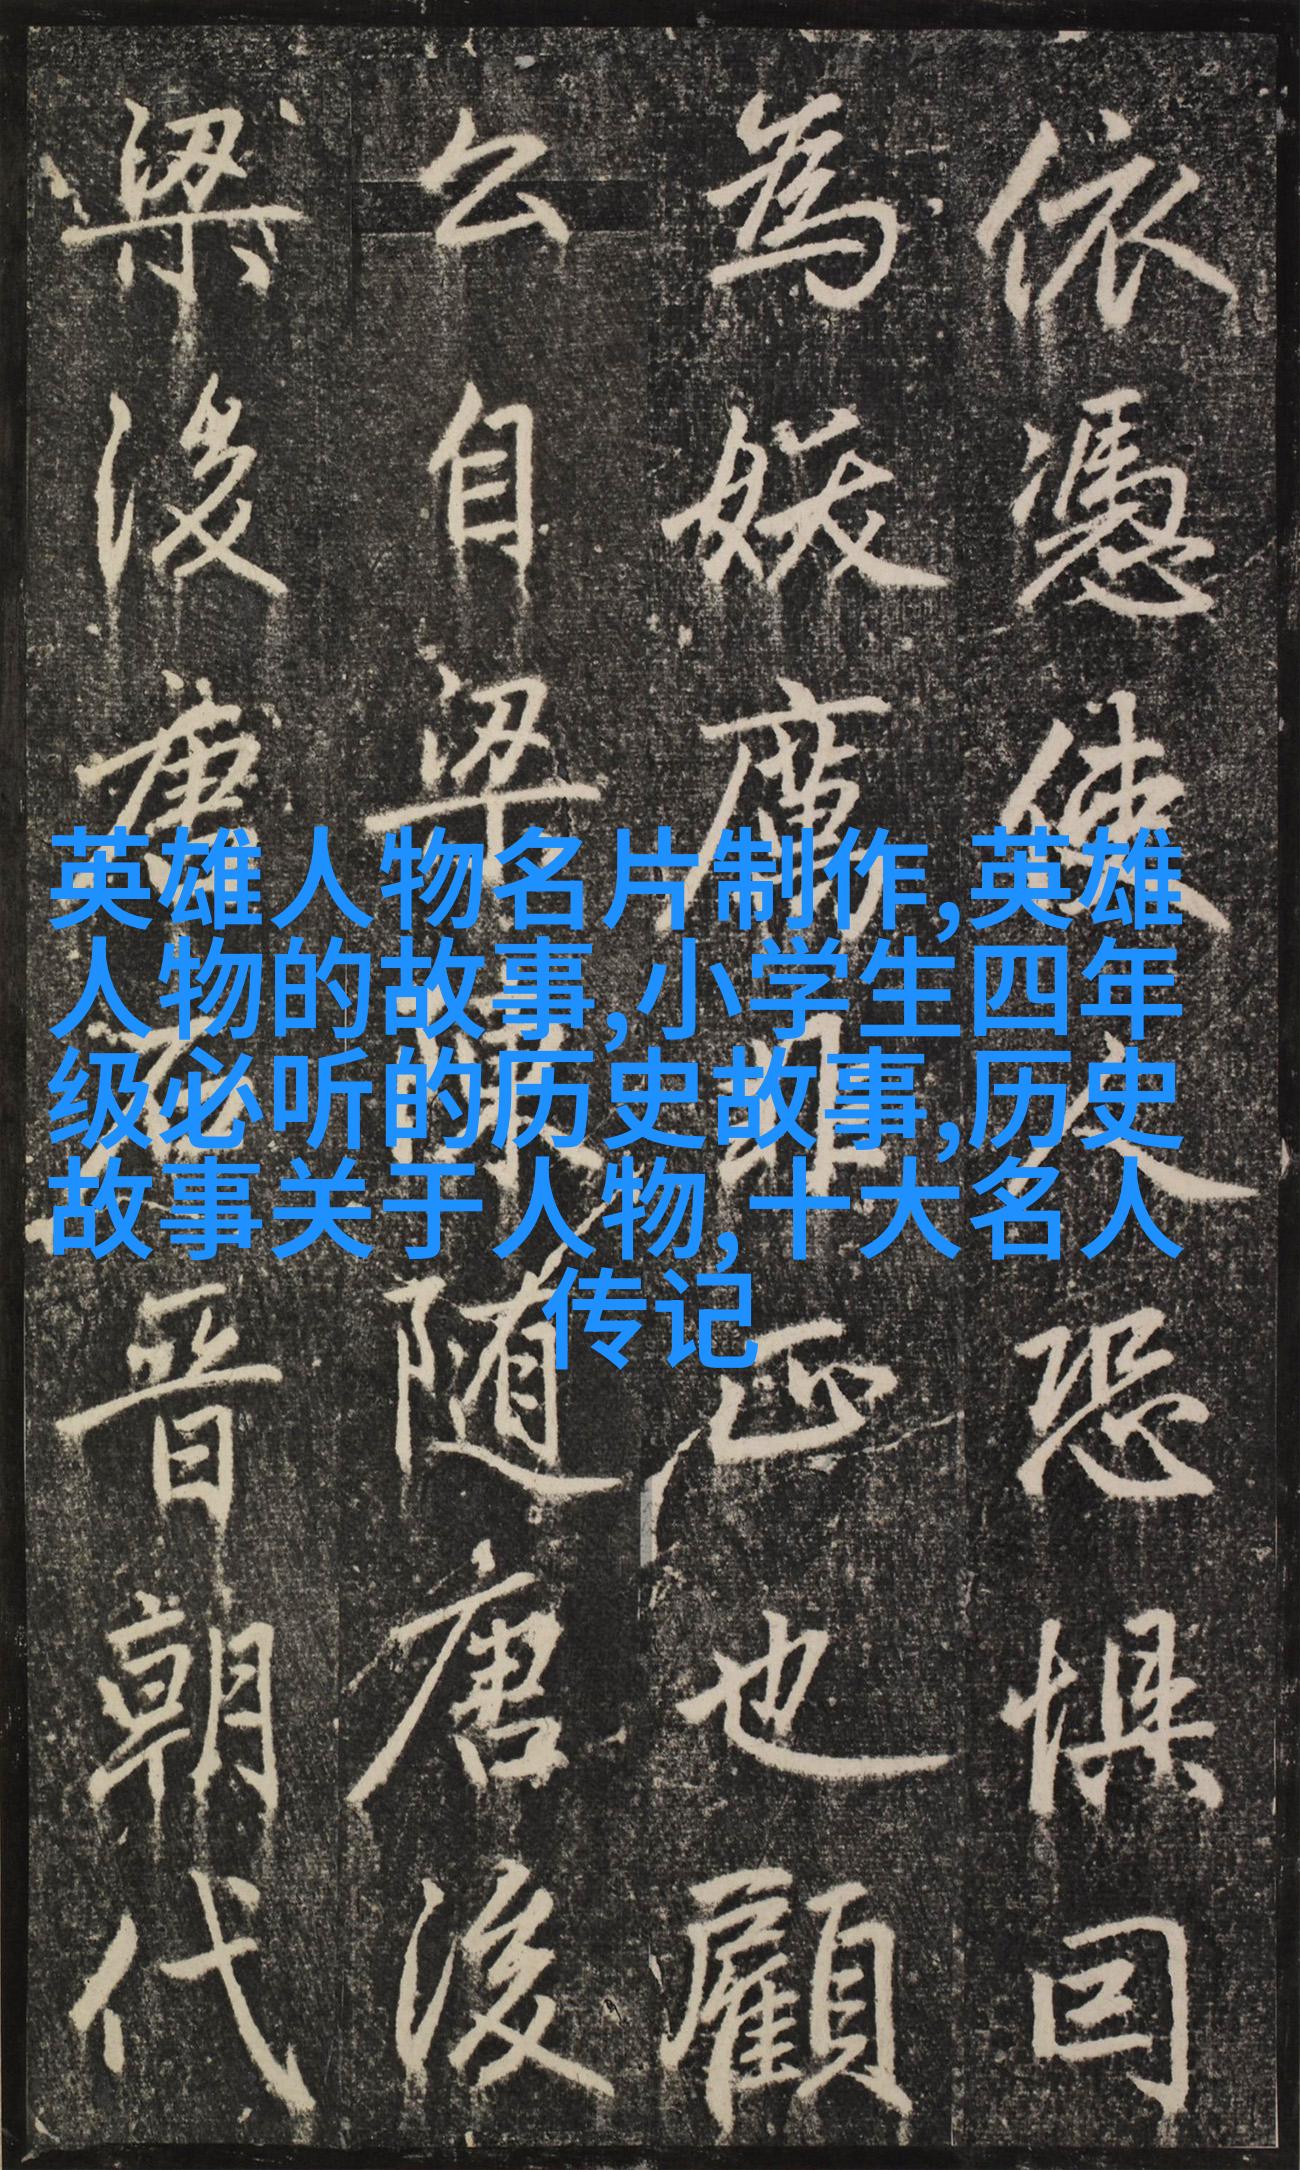 英雄人物名片制作,英雄
人物的故事,小学生四年
级必听的历史故事,历史
故事关于人物,十大名人
传记
依憑使人恐惧
為妖厲非正也顧
公自梁陳随唐後
梁後唐石晋朝代